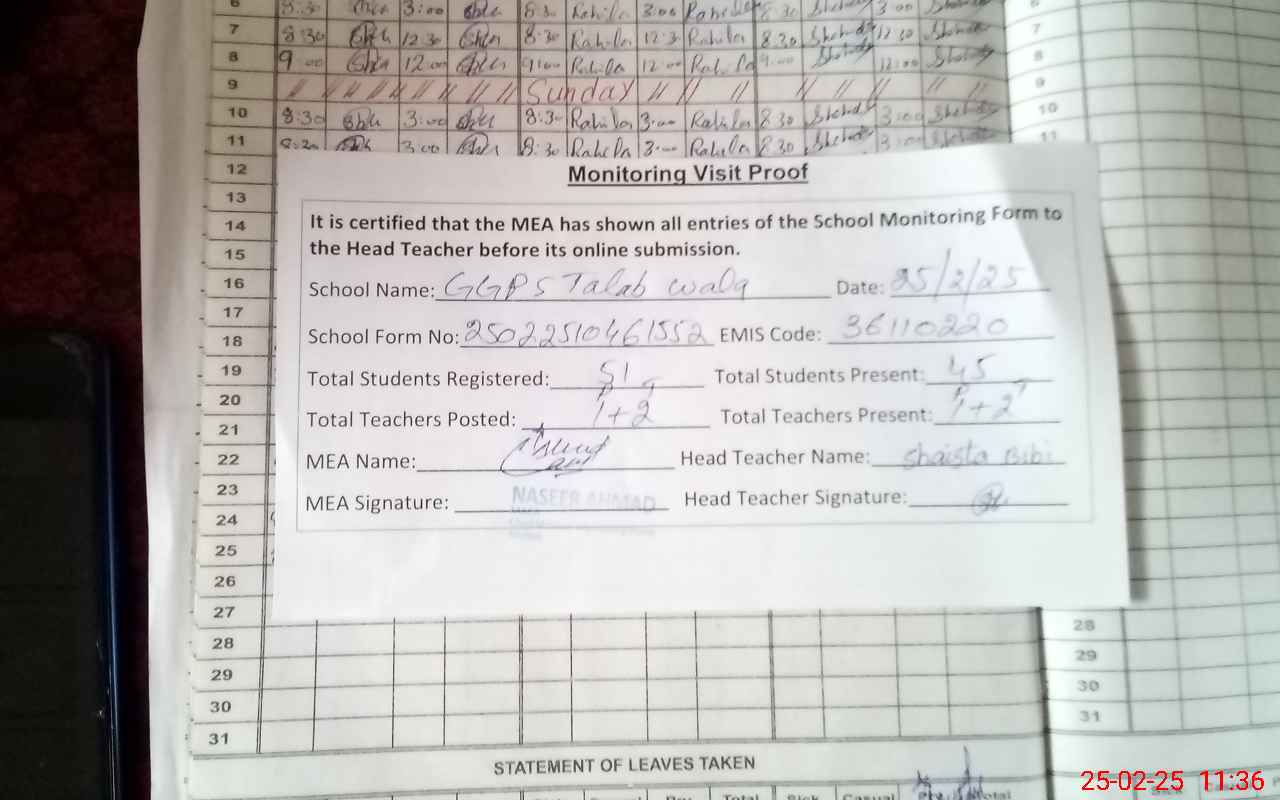 6 8:30 3:00 8:30 Rahila 3:00 Rahila 8 30 Shehat 3:00
7 8:30 12:30 8:30 Rahila 12:3 Rahila 8.30 Shehat 12 30 Shehat
8 9:00 12:00 9:00 Rahila 12:00 Rahila 9:00 Shehat 12:00 Shehat
9 // // // // // // // Sunday // // // // // // //
10 8:30 3:00 8:30 Rahila 3:00 Rahila 8 30 3:00 10
11 8:30 3:00 8:30 Rahila 3:00 Rahila 8 30 3:00 11
12
Monitoring Visit Proof
13
14 It is certified that the MEA has shown all entries of the School Monitoring Form to
15 the Head Teacher before its online submission.
16 School Name: GGPS Talab wala Date: 25/2/25
17
18 School Form No: 25022510461552 EMIS Code: 36110220
19 Total Students Registered: 51 Total Students Present: 45
20 Total Teachers Posted: 1+2 Total Teachers Present: 1+2
21
22 MEA Name: Head Teacher Name: Shaista Bibi
23 MEA Signature: NASEER AHMAD Head Teacher Signature:
24
25
26
27
28 28
29 29
30 30
31 31
STATEMENT OF LEAVES TAKEN
Total Sick Casual Total
25-02-25 11:36